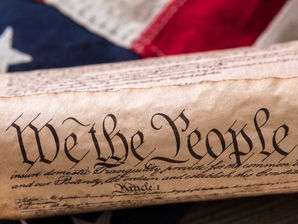 We the People
insure domestic Tranquility, provide for the common
and our Posterity, do ordain and establish this Constitu
Article I